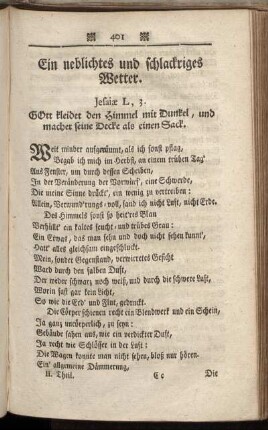 401
Ein neblichtes und schlackriges
Wetter.
Jesaiæ L, 3.
GOtt kleidet den Himmel mit Dunkel, und
machet seine Decke als einen Sack.
Weit minder aufgeräumt, als ich sonst pflag,
Begab ich mich im Herbst, an einem trüben Tag'
Ans Fenster, um durch dessen Scheiben,
In der Veränderung der Vorwürf', eine Schwerde,
Die meine Sinne drückt', ein wenig zu vertreiben:
Allein, Verwund'rungs-voll, fand ich nicht Luft, nicht Erde.
Des Himmels sonst so heit'res Blau
Verhüllt' ein kaltes feucht- und trübes Grau:
Ein Etwas, das man sehn und doch nicht sehen kunnt',
Hatt' alles gleichsam eingeschluckt.
Mein, sonder Gegenstand, verwirretes Gesicht
Ward durch den falben Duft,
Der weder schwarz noch weiß, und durch die schwere Luft,
Worin fast gar kein Licht,
So wie die Erd' und Flut, gedrückt.
Die Cörper schienen recht ein Blendwerk und ein Schein,
Ja ganz uncörperlich, zu seyn:
Gebäude sahen aus, wie ein verdickter Duft,
Ja recht wie Schlösser in der Luft:
Die Wagen konnte man nicht sehen, bloß nur hören.
Ein' allgemeine Dämmerung,
II. Theil. C c Die